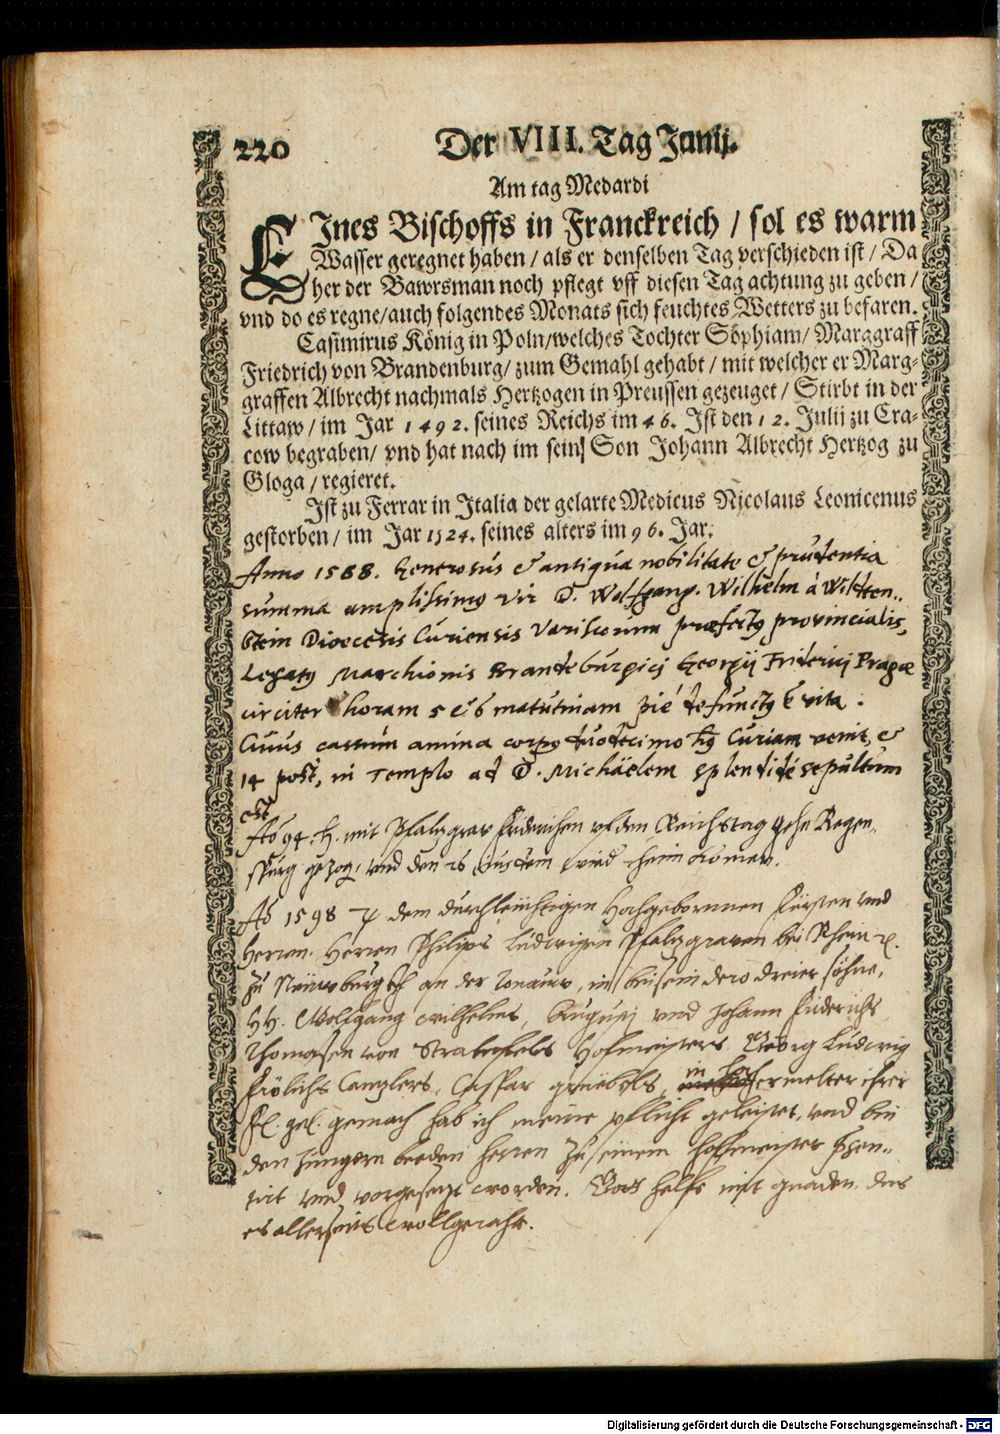 220
Der VIII. Tag Junij.
Am tag Medardi
EInes Bischoffs in Franckreich / sol es warm
Wasser geregnet haben / als er denselben Tag verschieden ist / Da
her der Bawrsman noch pflegt vff diesen Tag achtung zu geben /
vnd do es regne/auch folgendes Monats sich feuchtes Wetters zu befaren.
Casimirus König in Poln/welches Tochter Sophiam/ Marggraff
Friedrich von Brandenburg/ zum Gemahl gehabt / mit welcher er Marg-
graffen Albrecht nachmals Hertzogen in Preussen gezeuget / Stirbt in der
Littaw / im Jar 1492. seines Reichs im 46. Ist den 12. Julii zu Cra-
cow begraben/ vnd hat nach im sein Son Johann Albrecht Hertzog zu
Gloga / regieret.
Ist zu Ferrar in Italia der gelarte Medicus Nicolaus Leonicenus
gestorben / im Jar 1524. seines alters im 96. Jar.
Anno 1588. Generosus & antiqua nobilitate & prudentia
summa amplissimus vir D. Wolfgang. Wilhelm à
stein Dioecesis Curiensis Variscorum praefectus provincialis,
Legatus Marchionis Brandeburgici Georgij Friderici Pragae
circiter horam 5 & 6 matutinam pié defunctus è vita.
Cuius cassum anima corpus duodecimo hus Curiam venit, &
14 post, in Templo ad D. Michäelem splendidé sepultum
est
Ao 94. mit Pfalzgrav Friderichen vf den Reichstag gehn Regen
spurg gezog. vnd den 26 wid heim komen.
Ao 1598 dem durchleüchtigen Hochgebornnen Fürsten vnd
Herren. Herren Philips Ludwigen Pfalzgraven bei Rhein
zu an der Donaw, in beisein dero dreier söhne,
HH. Wolfgang Wilhelms, Augusti vnd Johann Friderichs
Thomasen von Hofmeisters Georg Ludwig
Frölichs Canzlers, Caspar in ermelter ihrer
gemach hab ich meine pflicht geleistet, vnd bin
den Jüngern beeden Herren zu einem hofmeister
tirt vnd vorgesezt worden. Gott helfe mit gnaden das
es allerseits wollgerahte.
Digitalisierung gefördert durch die Deutsche Forschungsgemeinschaft - DFG